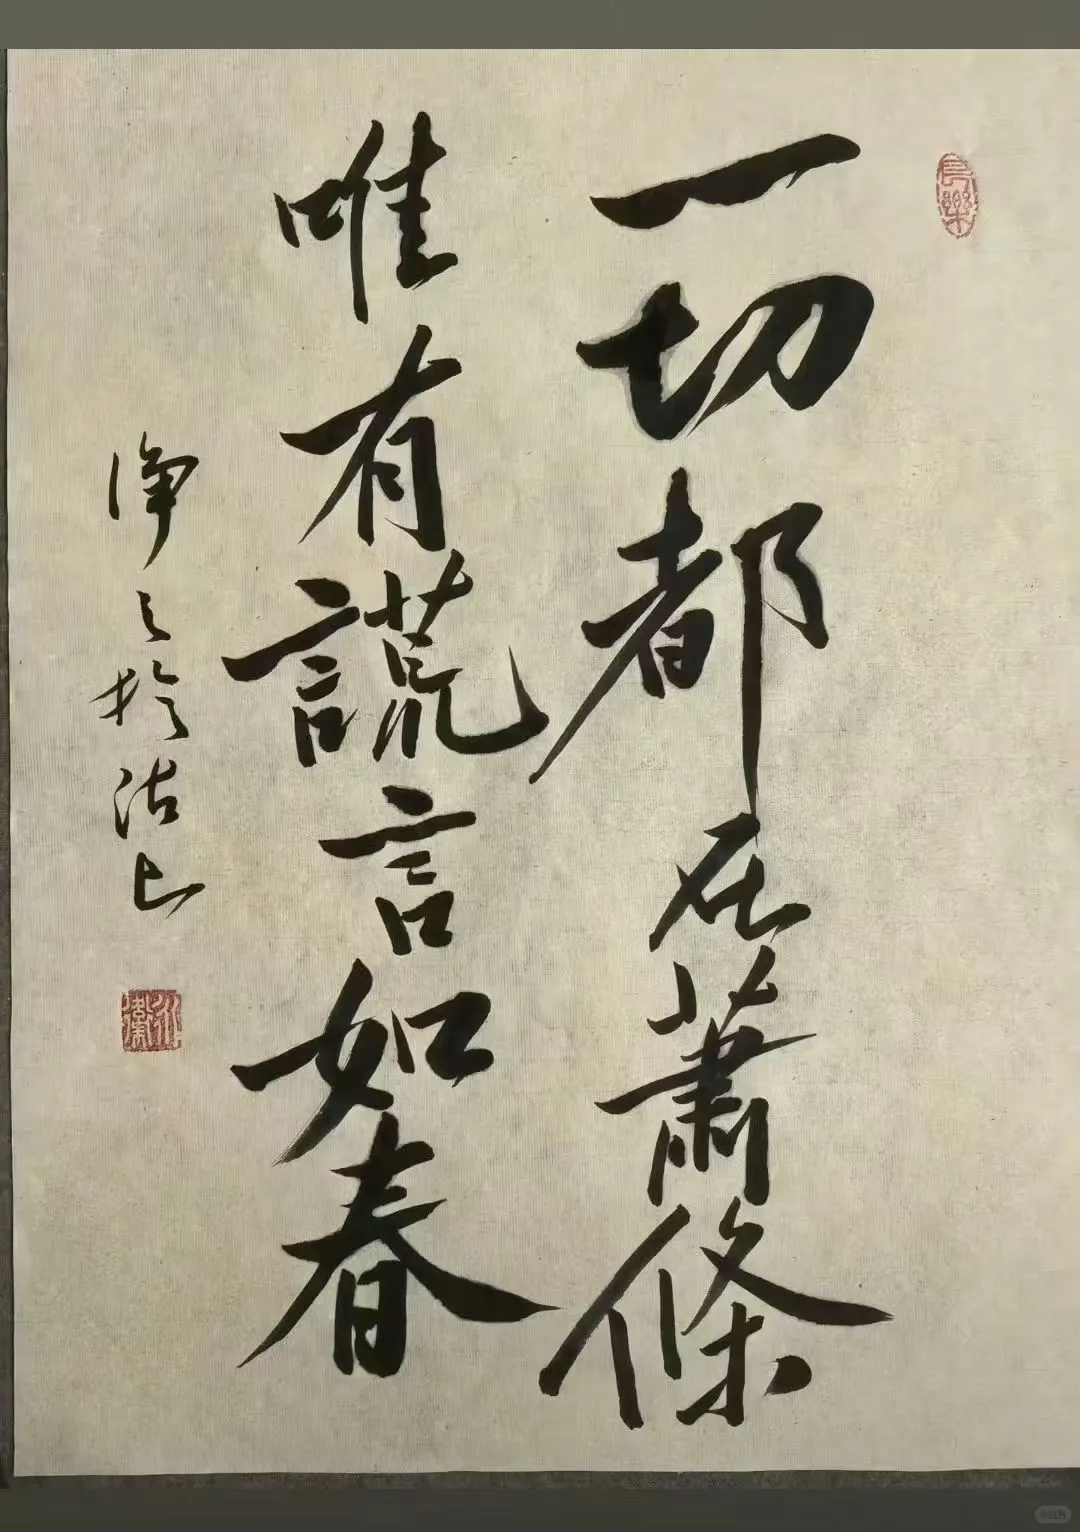 一切都在蕭條
唯有謊言如春
淨之於沽上
長樂
小红书